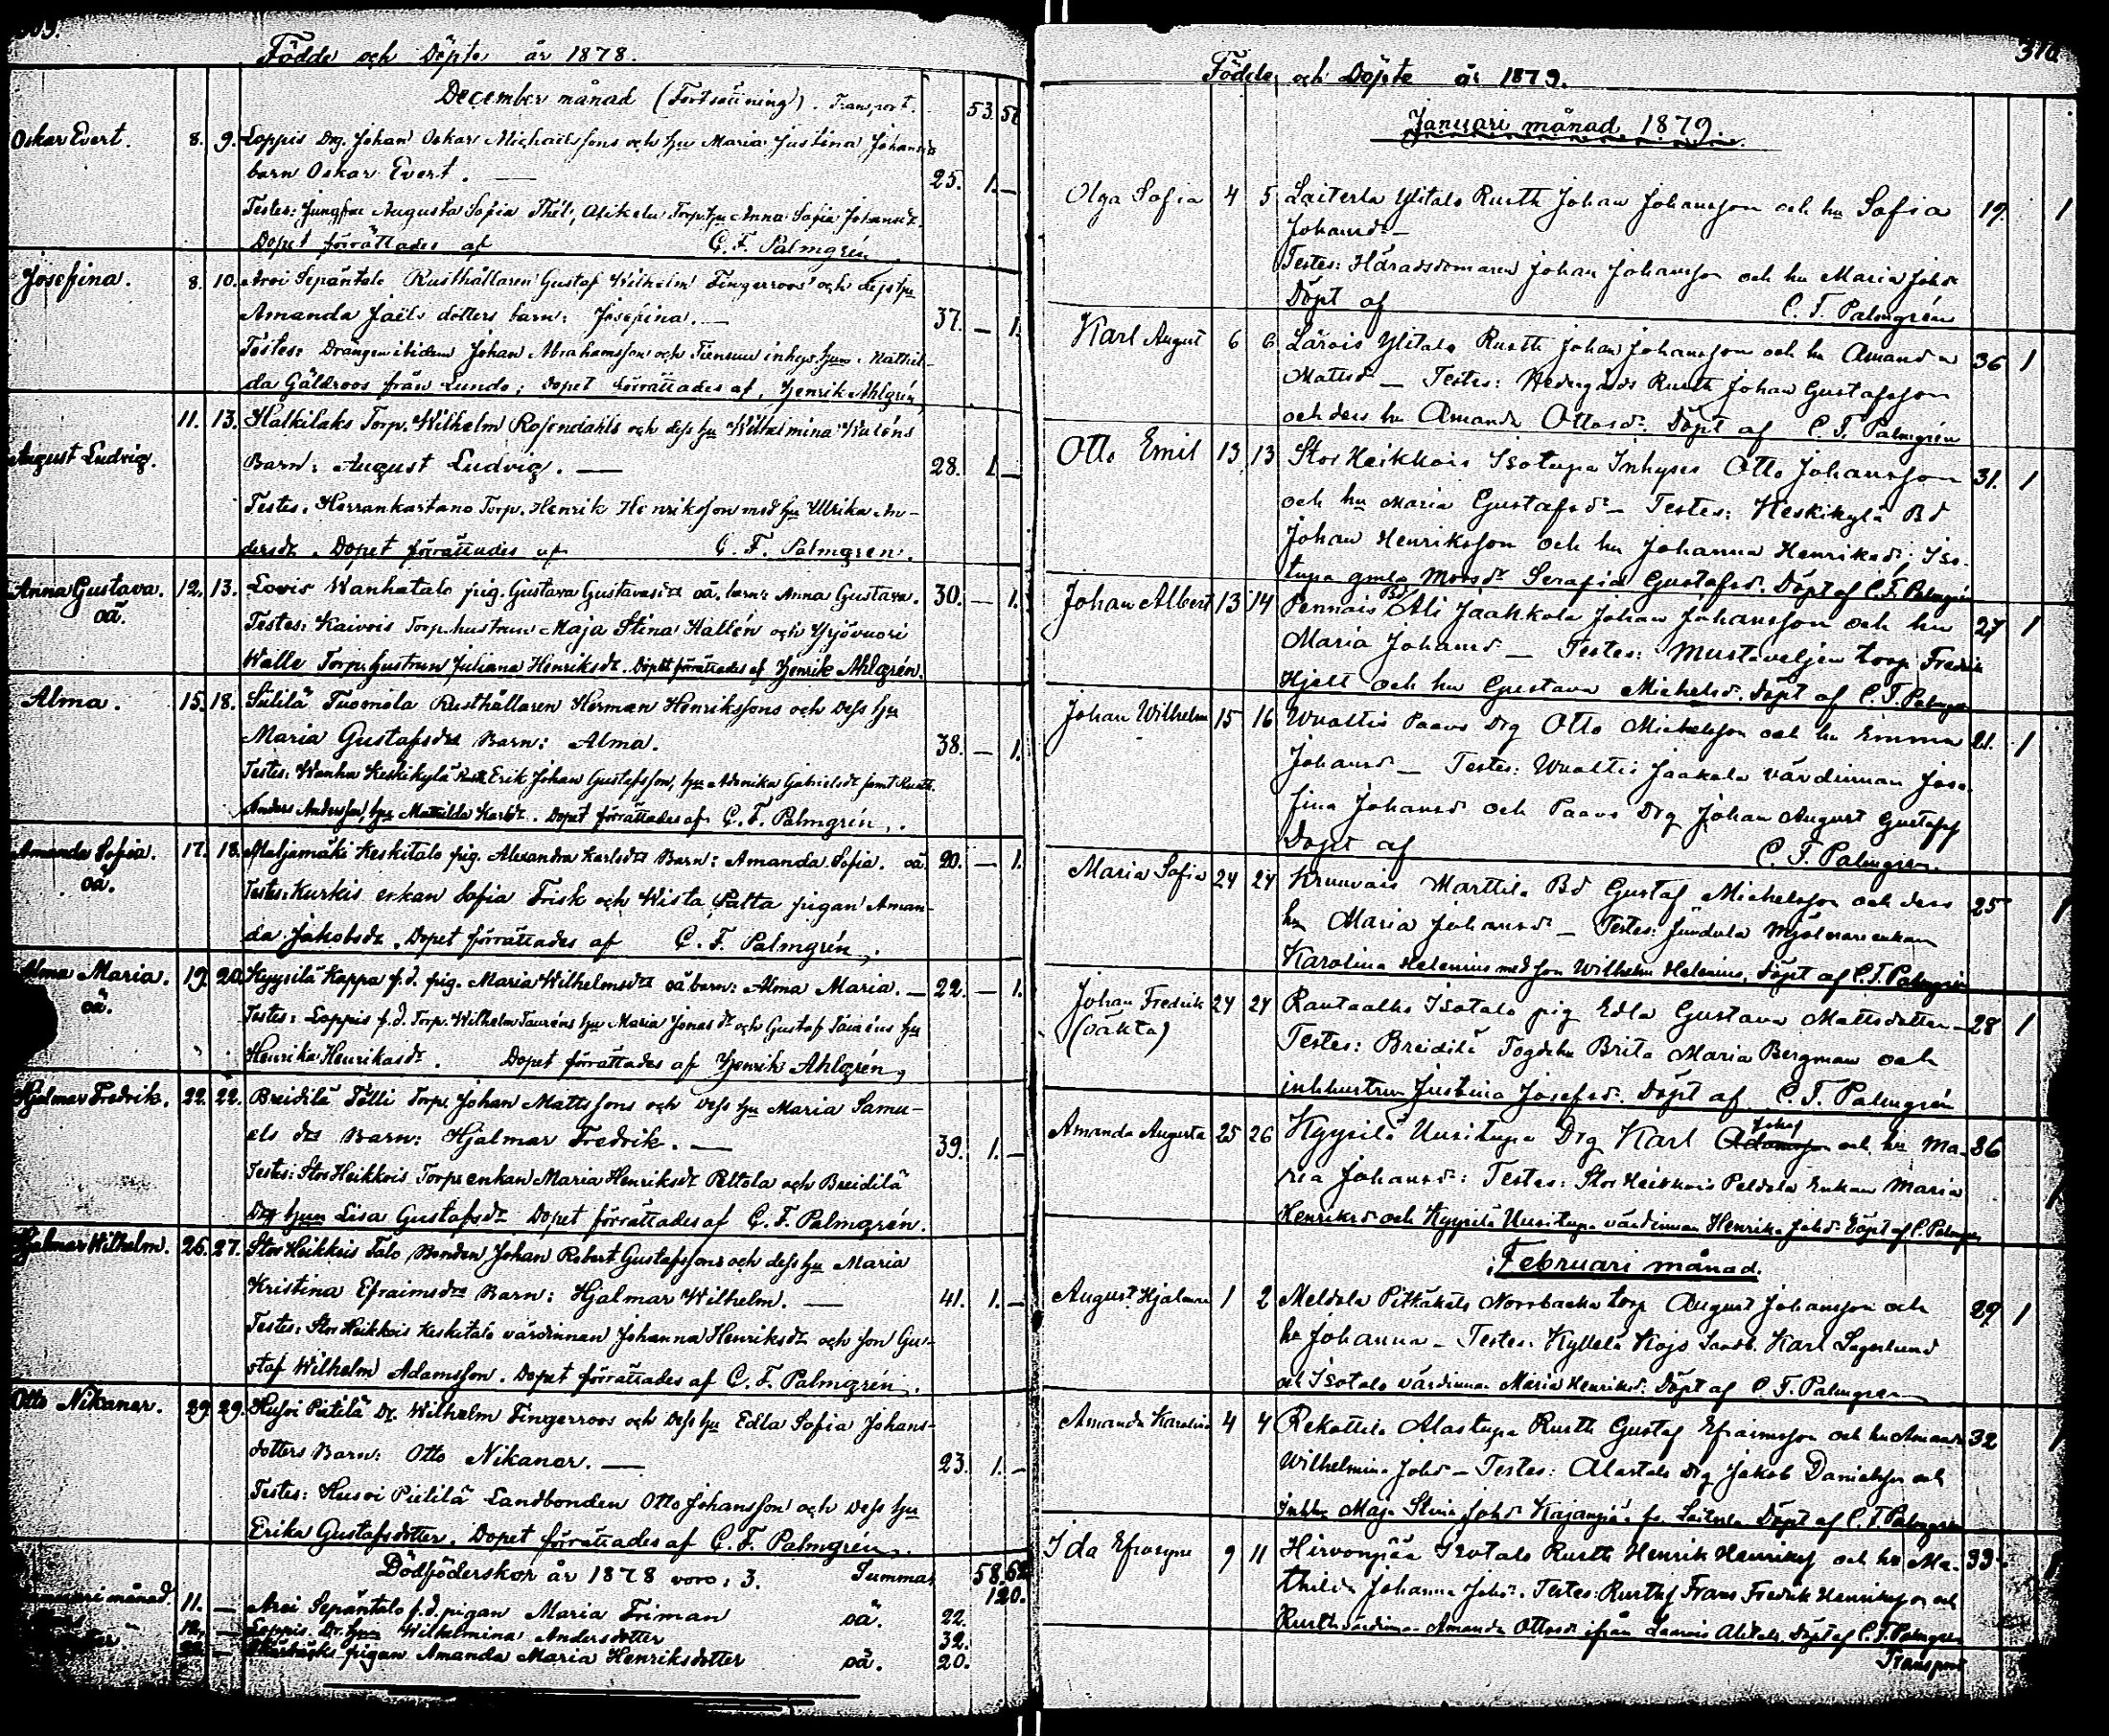 Födde och Döpte år 1878.
December månad (Fortsättning). Transport. 53. 5
Oskar Evert. 8. 9. Loppis Drg. Johan Oskar Michaelssons och hu Maria Justina Johans
barn Oskar Evert. — 25. 1. —
Testes: Jungfru Augusta Sofia Thél, Torp. hu Anna Sofia Johansdr.
Dopet förrättades af C. F. Palmgrén.
Josefina. 8. 10. Aroi Sepäntalo Rusthållaren Gustaf Wilhelm Fingerroos och dess hu
Amanda dotters barn: Josefina. — 37. — 1.
Testes: Drängen ibidem Johan Abrahamsson och inhys. hun Mathil-
da Gäldroos från Lundo; Dopet förrättades af, Henrik Ahlgrén
August Ludvig. 11. 13. Halkilaks Torp. Wilhelm Rosendahls och dess hu Wilhelmina
Barn: August Ludvig. — 28. 1. —
Testes. Herrankartano Torp. Henrik Henriksson med hu Ulrika An-
dersdr. Dopet förrättades af C. F. Palmgren.
Anna Gustava. oä. 12. 13. Lovis Wanhatalo pig. Gustava Gustavasdtr oä. barn: Anna Gustava. 30. — 1.
Testes: Kaivois Torp. hustrun Maja Stina Hallén och Yrjövuori
Walle Torp. hustrun Juliana Henriksdr. Dopet förrättades af Henrik Ahlgrén.
Alma. 15. 18. Tuomola Rusthållaren Herman Henrikssons och Dess hu
Maria Gustafsdtrs Barn: Alma. 38. — 1.
Testes: Wanha Keskikylä Rusth. Erik Johan Gustafsson, hu Gabrielsdr samt Rusth.
Anders Andersson, hu Mathilda Karlsdr. Dopet förrättades af C. F. Palmgrén.
Amanda Sofia. oä. 17. 18. Maljamäki Keskitalo pig. Alexandra Karlsdtrs Barn: Amanda Sofia. oä. 20. — 1.
Testes: Kurkis enkan Sofia Frisk och Wista Patta pigan Aman-
da Jakobsdr. Dopet förrättades af C. F. Palmgrén.
Alma Maria. oä. 19. 20. Kyysilä Kappa f. d. pig. Maria Wilhelmsdtrs oä barn: Alma Maria. — 22. — 1.
Testes: Loppis f. d. Torp. Wilhelm Tauréns hu Maria Jonasdr och Gustaf hu
Henrika Henriksdr. Dopet förrättades af Henrik Ahlgrén,
Hjalmar Fredrik. 22. 22. Breidilä Tölli Torp. Johan Mattssons och Dess hu Maria Samu-
els dtrs Barn: Hjalmar Fredrik. — 39. 1. —
Testes: Stor Heikkois Torps enkan Maria Henriksdr Peltola och Breidilä
Drg hun Lisa Gustafsdr. Dopet förrättades af C. F. Palmgrén.
Hjalmar Wilhelm. 26. 27. Stor Heikkois Talo Bonden Johan Robert Gustafssons och dess hu Maria
Kristina Efraimsdtrs Barn: Hjalmar Wilhelm. — 41. 1. —
Testes: Stor Heikkois Keskitalo värdinnan Johanna Henriksdr och son Gus-
staf Wilhelm Adamsson. Dopet förrättades af C. F. Palmgrén.
Otto Nikanor. 29. 29. Husoi Pietilä Dr. Wilhelm Fingerroos och Dess hu Edla Sofia Johans-
dotters Barn: Otto Nikanor. — 23. 1. —
Testes: Husoi Pietilä Landbonden Otto Johansson och Dess hu
Erika Gustafsdotter. Dopet förrättades af C. F. Palmgrén.
Dödföderskor år 1878 voro: 3. Summa, 58. 62
120.
månad. 11. — Aroi Sepäntalo f. d. pigan Maria Friman oä. 22.
12. — Loppis Dr. hu Wilhelmina Andersdotter 32.
pigan Amanda Maria Henriksdotter oä. 20.
310.
Födde och Döpte år 1879.
Januari månad 1879.
Olga Sofia 4 5 Laiterla Ylitalo Rusth Johan Johansson och hu Sofia 19. 1
Johansdr —
Testes: Häradsdomaren Johan Johansson och hu Maria Johsdr
Döpt af C. F. Palmgrén
Karl August 6 6 Lärois Ylitalo Rusth Johan Johansson och hu Amanda 36 1
Mattsdr — Testes: Rusth Johan Gustafsson
och dess hu Amanda Ottosdr. Döpt af C. F. Palmgrén
Otto Emil 13 13 Stor Heikkois Isotupa Inhyses Otto Johansson 31. 1
och hu Maria Gustafsdr — Testes: Keskikylä Bd
Johan Henriksson och hu Johanna Henriksdr; Iso-
tupa gmla Serafia Gustafsdr. Döpt af C. F. Palmgrén
Johan Albert 13 14 Pennäis Bd Ali Jaakkola Johan Johansson och hu 27 1
Maria Johansd — Testes: torp Fredrik
Hjelt och hu Gustava Michelsd. Döpt af C. F. Palmgr
Johan Wilhelm 15 16 Wualtis Paavo Drg Otto Michelsson och hu Emma 21. 1
Johansd — Testes: Wualtis Jaakola värdinnan Jose-
fina Johansd och Paavo Drg Johan August Gustafss
Döpt af C. F. Palmgrén.
Maria Sofia 24 24 Kruuvais Marttila Bd Gustaf Michelsson och dess 25 1
hu Maria Johansd — Testes: Mjölnareenkan
Karolina Helenius med son Wilhelm Helenius. Döpt af C. F. Palmgrén
Johan Fredrik (oäkta) 24 24 Rantaalho Isotalo pig Edla Gustava Mattsdotter — 28 1
Testes: Breidilä Brita Maria Bergman och
inhhustrun Justina Josefsd. Döpt af C. F. Palmgrén
Amanda Augusta 25 26 Kyysilä Uusitupa Drg Karl Adamsson Johss och hu Ma- 36
ria Johansd: Testes: Stor Heikkois Peldola Enkan Maria 1
Henriksd och Kyysilä Uusitupa värdinnan Henrika Johsd Döpt af C. Palmgren
Februari månad.
August Hjalmar 1 2 Meldola Pitkäkals Norrbacka torp August Johansson och 29 1
hu Johanna — Testes. Kyllelä Kojo Landb. Karl Lagerlund
och Isotalo värdinnan Maria Henriksd. Döpt af C F. Palmgren
Amanda Karolina 4 4 Rekottila Alastupa Rusth Gustaf Efraimsson och hu Amanda 32 1
Wilhelmina Johsd — Testes: Alastalo drg Jakob Danielsson och
Inhhu Maja Stina Johsd fr Laiterla Döpt af C. F. Palmgren
Ida Efrosyne 9 11 Hirvonpää Isotalo Rusth Henrik Henrikss och hu Ma- 33 1
thilda Johanna Johsd. Testes: Rusths Frans Fredrik Henriksson och
Rusth värdinna Amanda Ottosd ifrån Laarois Alitalo, Döpt af C. F. Palmgren
Transport